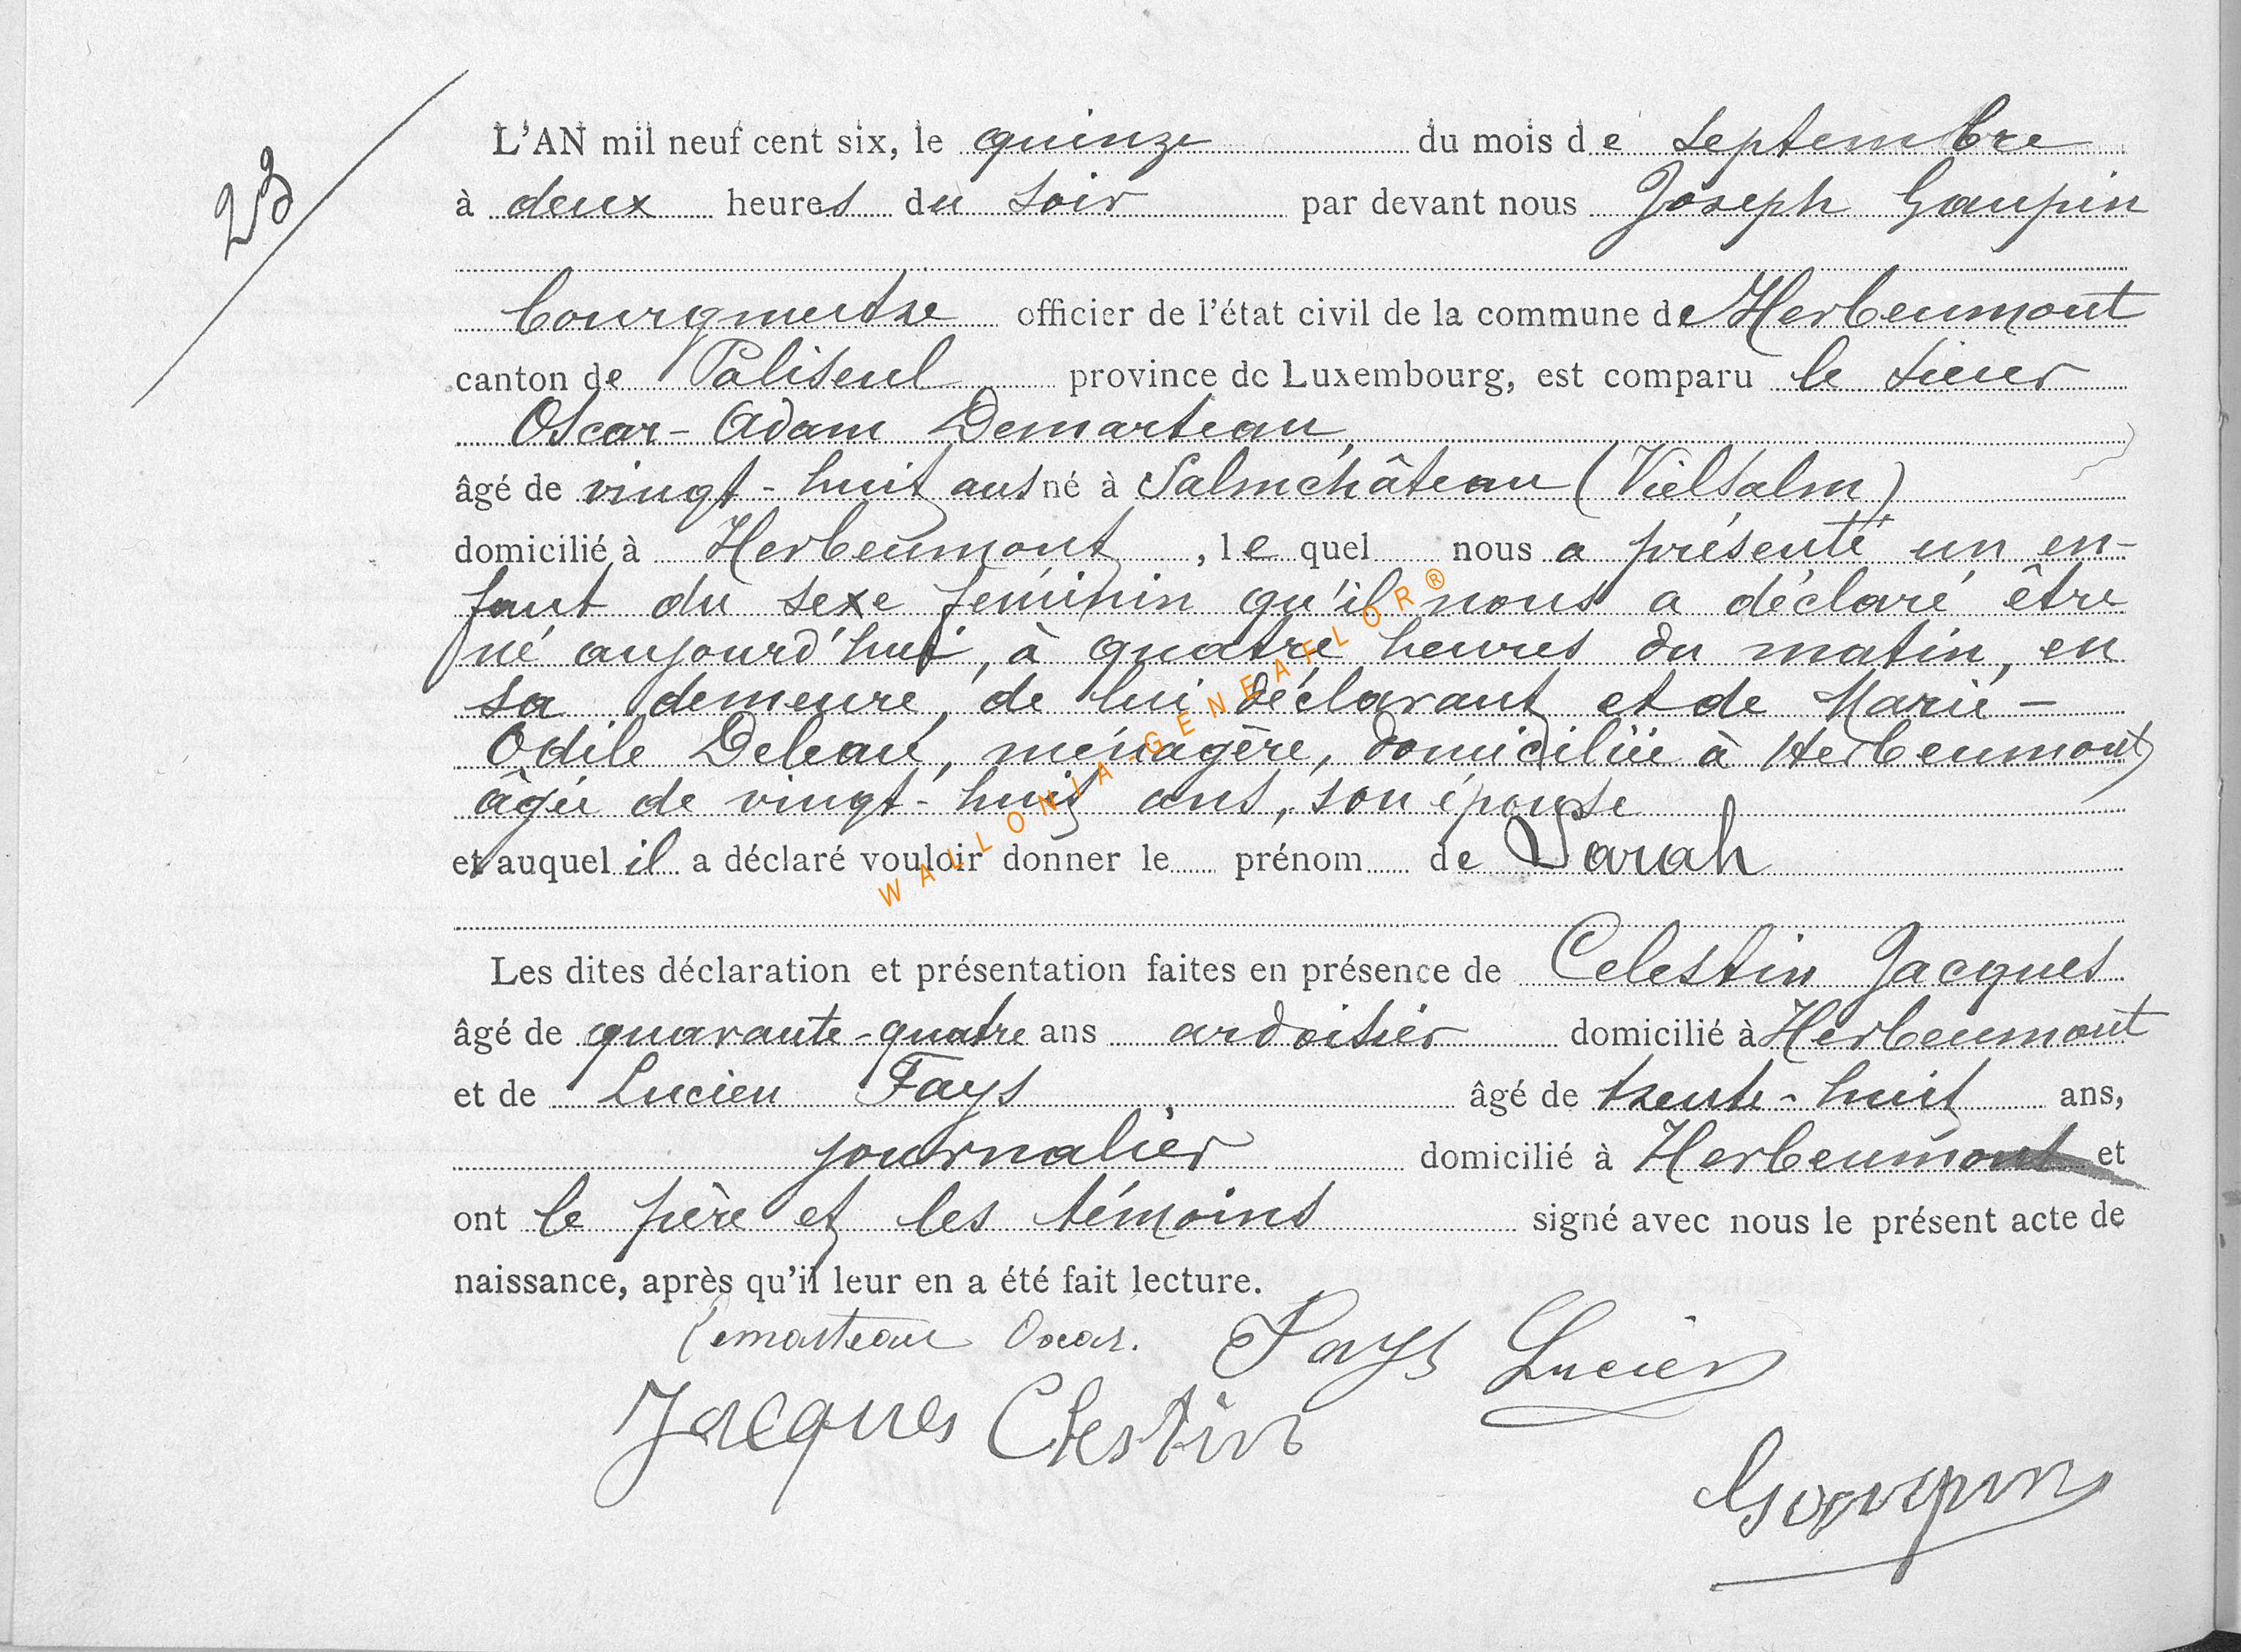 23
L'AN mil neuf cent six, le quinze du mois de Septembre
à deux heures du soir par devant nous Joseph Gaupin
bourgmestre officier de l'état civil de la commune de Herbeumont
canton de Paliseul province de Luxembourg, est comparu le sieur
Oscar-Adam Demarteau,
âgé de vingt-huit ans né à Salmchâteau (Vielsalm)
domicilié à Herbeumont, lequel nous a présenté un en-
fant du sexe féminin qu'il nous a déclaré être
né aujourd'hui, à quatre heures du matin, en
sa demeure, de lui déclarant et de Marie-
Odile Deleau, ménagère, domiciliée à Herbeumont,
âgée de vingt-huit ans, son épouse
et auquel il a déclaré vouloir donner le prénom de Sarah
Les dites déclaration et présentation faites en présence de Celestin Jacques
âgé de quarante-quatre ans ardoisier domicilié à Herbeumont
et de Lucien Fays âgé de trente-huit ans,
journalier domicilié à Herbeumont et
ont le père et les témoins signé avec nous le présent acte de
naissance, après qu'il leur en a été fait lecture.
Demarteau Oscar. Fays Lucien
Jacques Celestin
Gaupin
WALLONIA-GENEAFLOR®